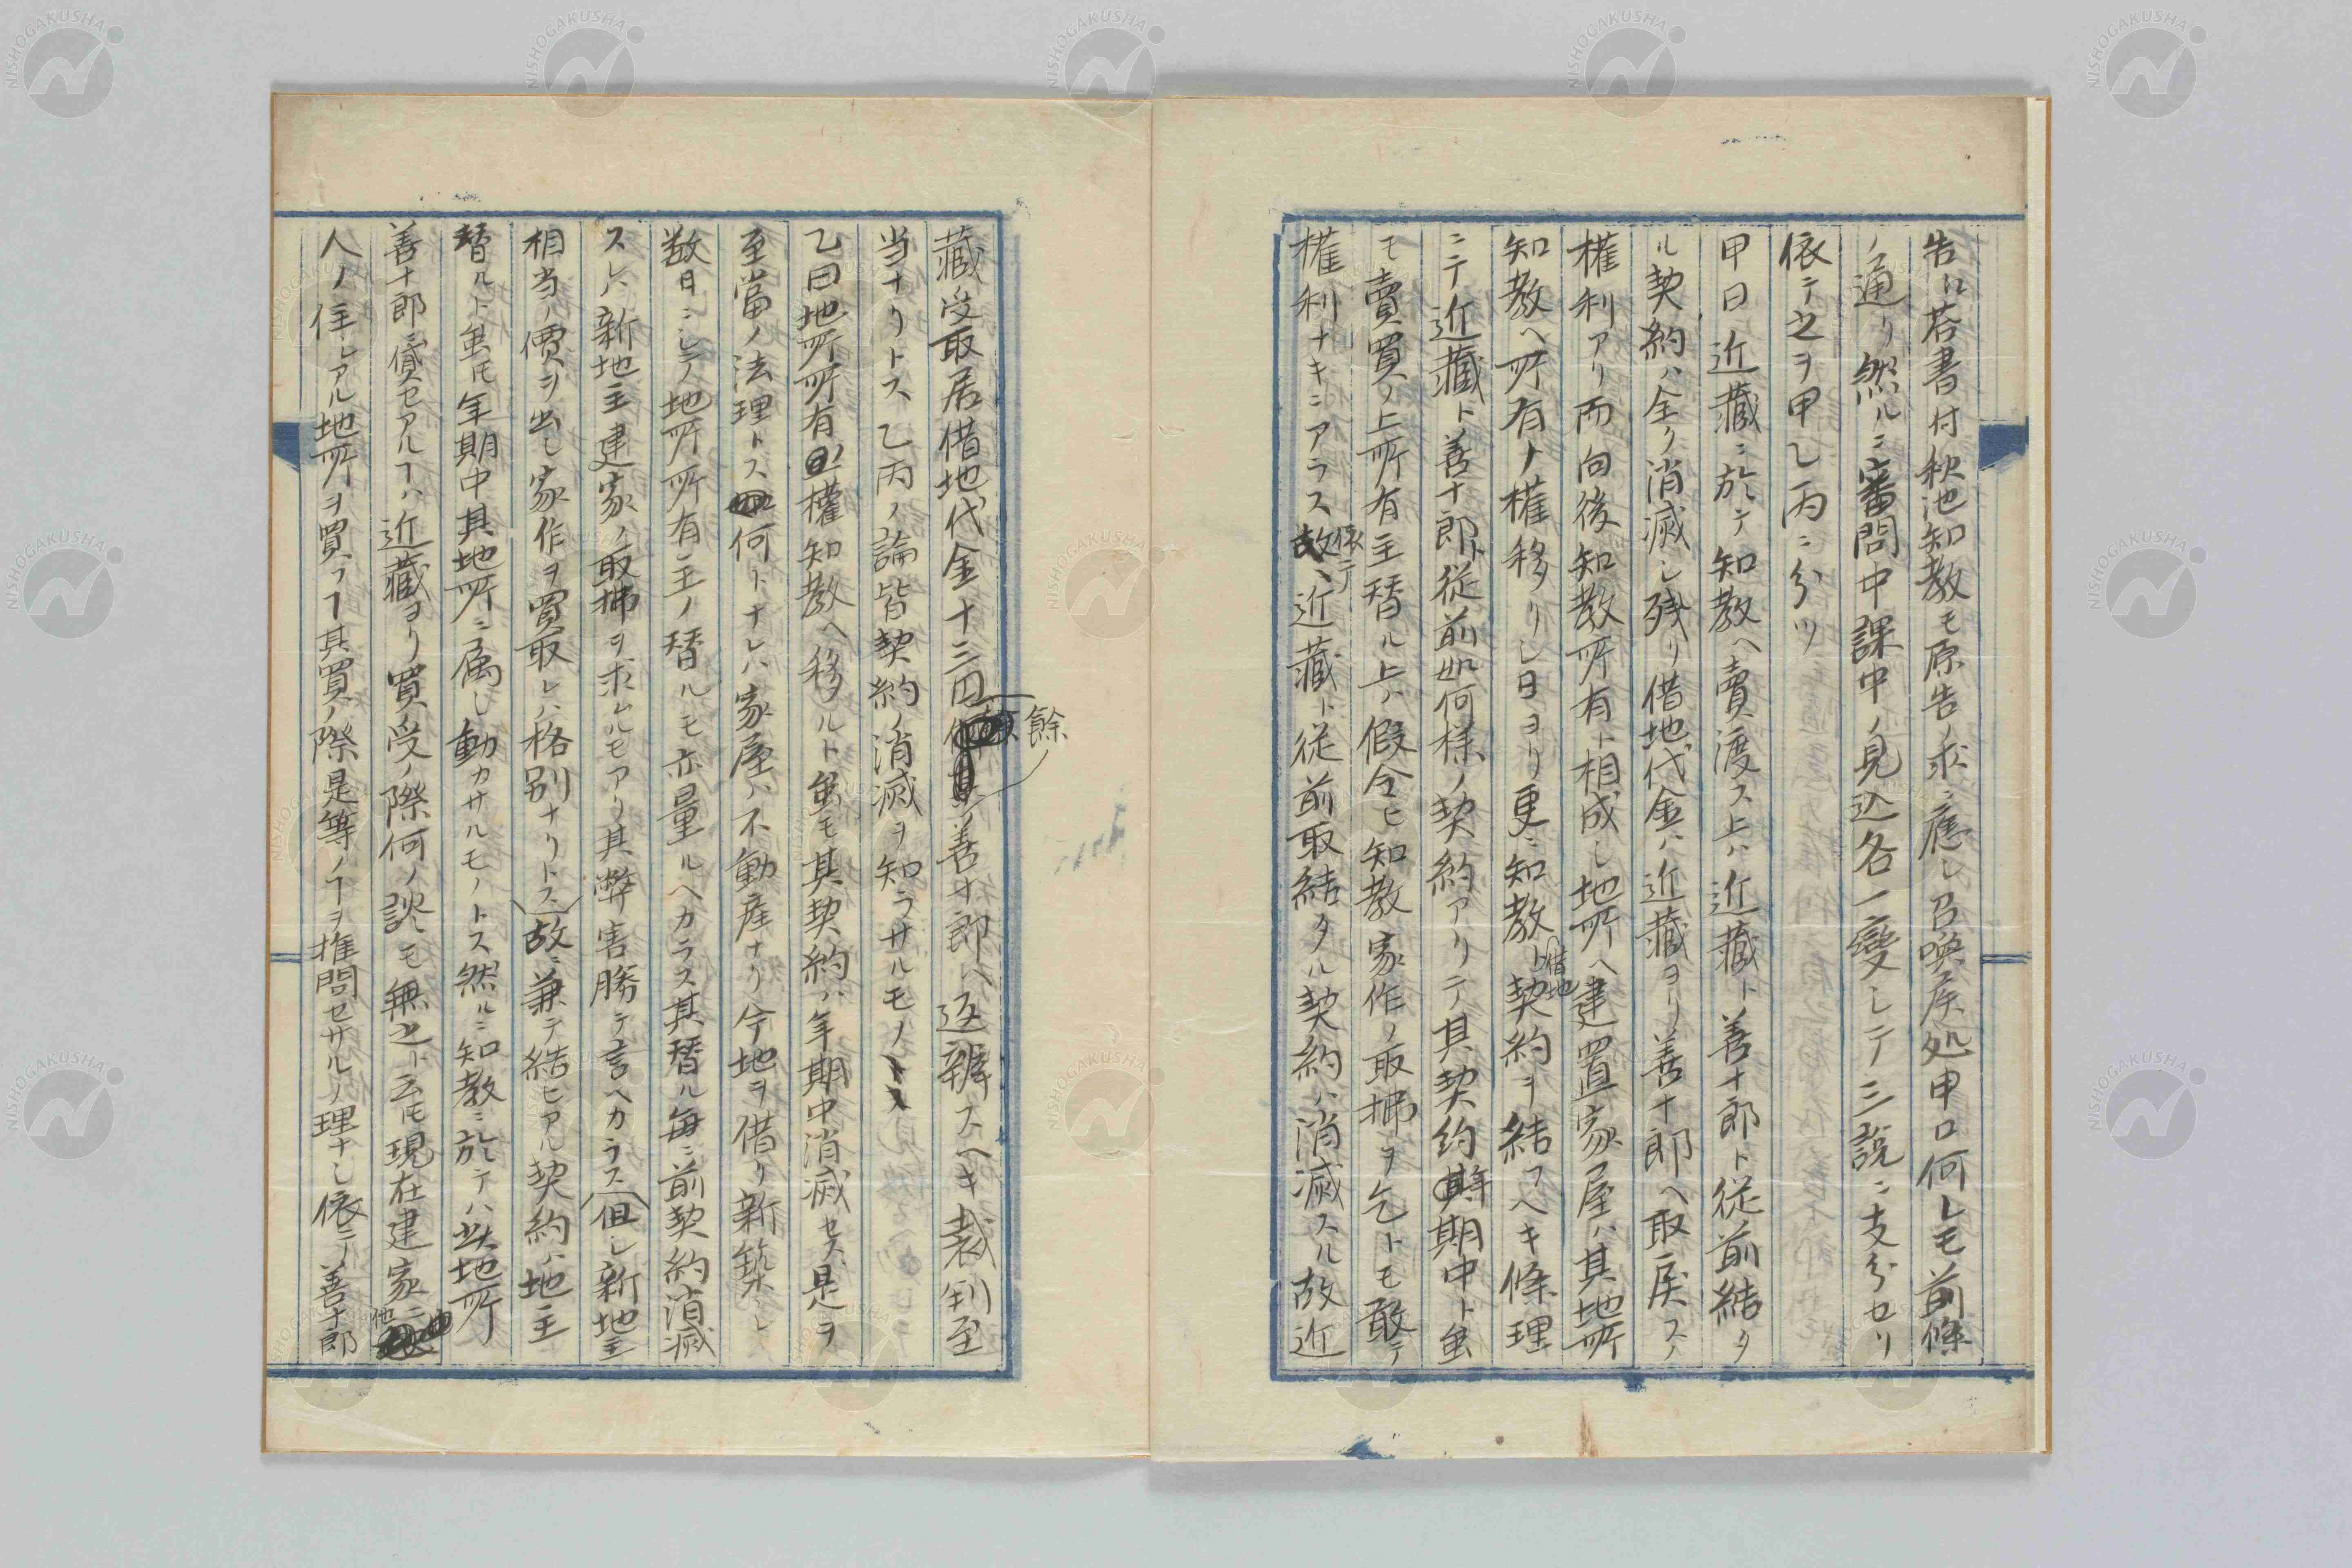 告ニ答書付秋池知教モ原告ノ求ニ應シ召喚戻処申口何レモ前條
ノ通リ然ルニ審問中課中ノ見込各一變シテ三説ニ支分セリ
依テ之ヲ甲乙丙ニ分ツ
甲曰近藏ニ於テ知教ヘ賣渡ス上ハ近藏ト善十郎ト従前結タ
ル契約ハ全ク消滅シ残リ借地代金ハ近藏ヨリ善十郎ヘ取戻スノ
權利アリ而向後知教所有ト相成シ地所ヘ建置家屋ハ其地所
知教ヘ所有ノ權移リシ日ヨリ更ニ知教ト借地契約ヲ結フヘキ條理
ニテ近藏ト善十郎ト従前如何様ノ契約アリテ其契約年期中ト虽
モ賣買ノ上所有主替ル上ハ假令ヒ知教家作ノ取拂ヲ乞トモ敢テ
權利ナキニアラス依テ近藏ト従前取結タル契約ハ消滅スル故近
藏受取居借地代金十三円餘善十郎ヘ返辨スヘキ裁判至
当ナリトス乙丙ノ論皆契約ノ消滅ヲ知ラサルモノトス
乙曰地所所有權知教ヘ移ルト虽モ其契約ハ年期中消滅セス是ヲ
至當ノ法理トス何トナレハ家屋ハ不動産ナリ今地ヲ借リ新築シ
数日ニシテ地所所有主ノ替ルモ亦量ルヘカラス其替ル毎ニ前契約消滅
スレハ新地主建家ノ取拂ヲ求ルモアリ其弊害勝テ言ヘカラス但シ新地主
相当ノ價ヲ出シ家作ヲ買取レハ格別ナリトス故ニ兼テ結ヒアル契約ハ地主
替ルト虽モ年期中其地所ニ属シ動カサルモノトス然ルニ知教ニ於テハ此地所
善十郎ニ貸セアルヿハ近藏ヨリ買受ノ際何ノ談モ無之ト云モ現在建家ニ他
人ノ住レアル地所ヲ買フヿ其買ノ際是等ノヿヲ推問セサルノ理ナシ依テ善十郎